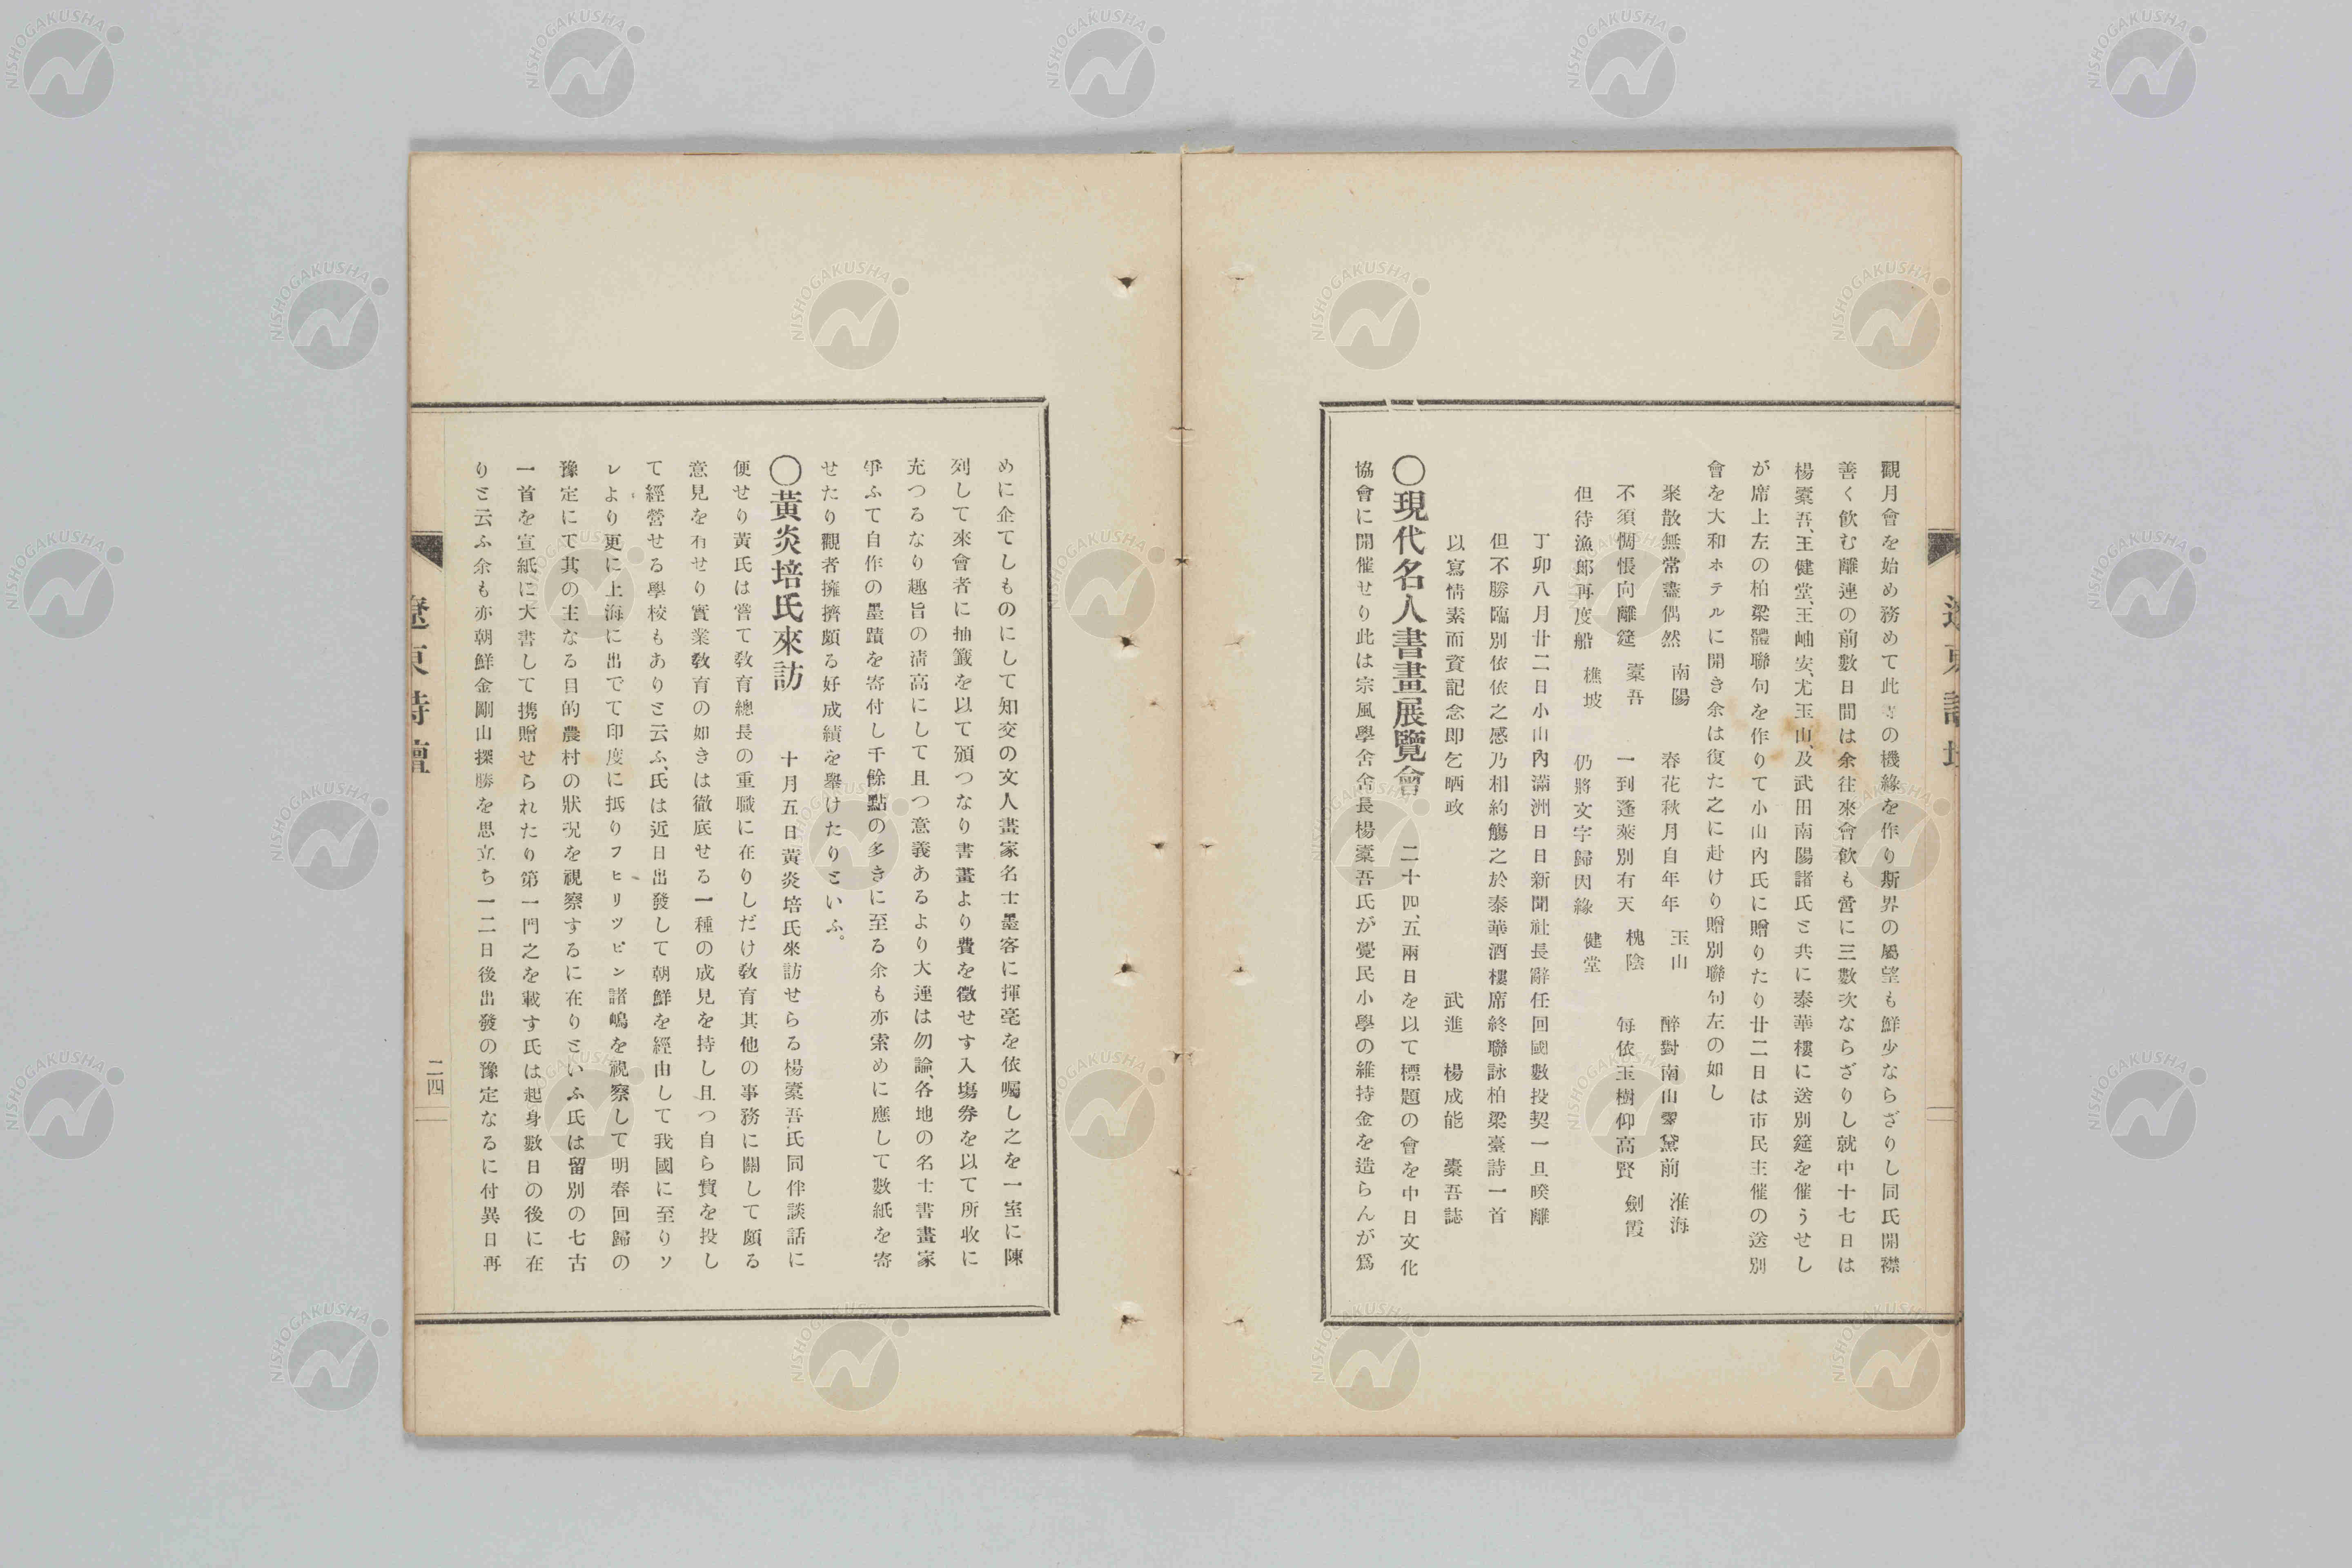 觀月會を始め務めて此寺の機緣を作り斯界の屬望も鮮少ならざりし同氏開襟
善く飮む離連の前數日間は余往來會飮も啻に三數次ならざりし就中十七日は
楊槖吾、王健堂、王岫安、尤玉山、及武田南陽諸氏と共に泰華樓に送別筵を催うせし
が席上左の柏梁體聯句を作りて小山內氏に贈りたり廿二日は市民主催の送別
會を大和ホテルに開き余は復た之に赴けり贈別聯句左の如し
聚散無常盡偶然 南陽 春花秋月自年年 玉山 醉對南山翠黛前 淮海
不須惆悵向離筵 槖吾 一到蓬萊別有天 槐陰 每依玉樹仰高賢 劍霞
但待漁郞再度船 樵坡 仍將文字歸因緣 健堂
丁卯八月廿二日小山內滿洲日日新聞社長辭任回國數投契一旦暌離
但不勝臨別依依之感乃相約觴之於泰華酒樓席終聯詠柏梁臺詩一首
以寫情素而資記念即乞哂政 武進 楊成能 槖吾誌
〇現代名人書畫展覽會 二十四、五兩日を以て標題の會を中日文化
協會に開催せり此は宗風學舍舍長楊槖吾氏が覺民小學の維持金を造らんが爲
めに企てしものにして知交の文人畫家名士墨客に揮毫を依囑し之を一室に陳
列して來會者に抽籤を以て頒つなり書畫より費を徵せす入場券を以て所收に
充つるなり趣旨の淸高にして且つ意義あるより大連は勿論、各地の名士書畫家
爭ふて自作の墨蹟を寄付し千餘點の多きに至る余も亦索めに應して數紙を寄
せたり觀者擁擠頗る好成績を擧けたりといふ。
〇黃炎培氏來訪 十月五日黃炎培氏來訪せらる楊槖吾氏同伴談話に
便せり黃氏は嘗て敎育總長の重職に在りしだけ敎育其他の事務に關して頗る
意見を有せり實業敎育の如きは徹底せる一種の成見を持し且つ自ら貲を投し
て經營せる學校もありと云ふ、氏は近日出發して朝鮮を經由して我國に至りソ
レより更に上海に出でて印度に抵りフヒリツピン諸嶋を視察して明春回歸の
豫定にて其の主なる目的農村の狀況を視察するに在りといふ氏は留別の七古
一首を宣紙に大書して携贈せられたり第一門之を載す氏は起身數日の後に在
りと云ふ余も亦朝鮮金剛山探勝を思立ち一二日後出發の豫定なるに付異日再
遼東詩壇
二四